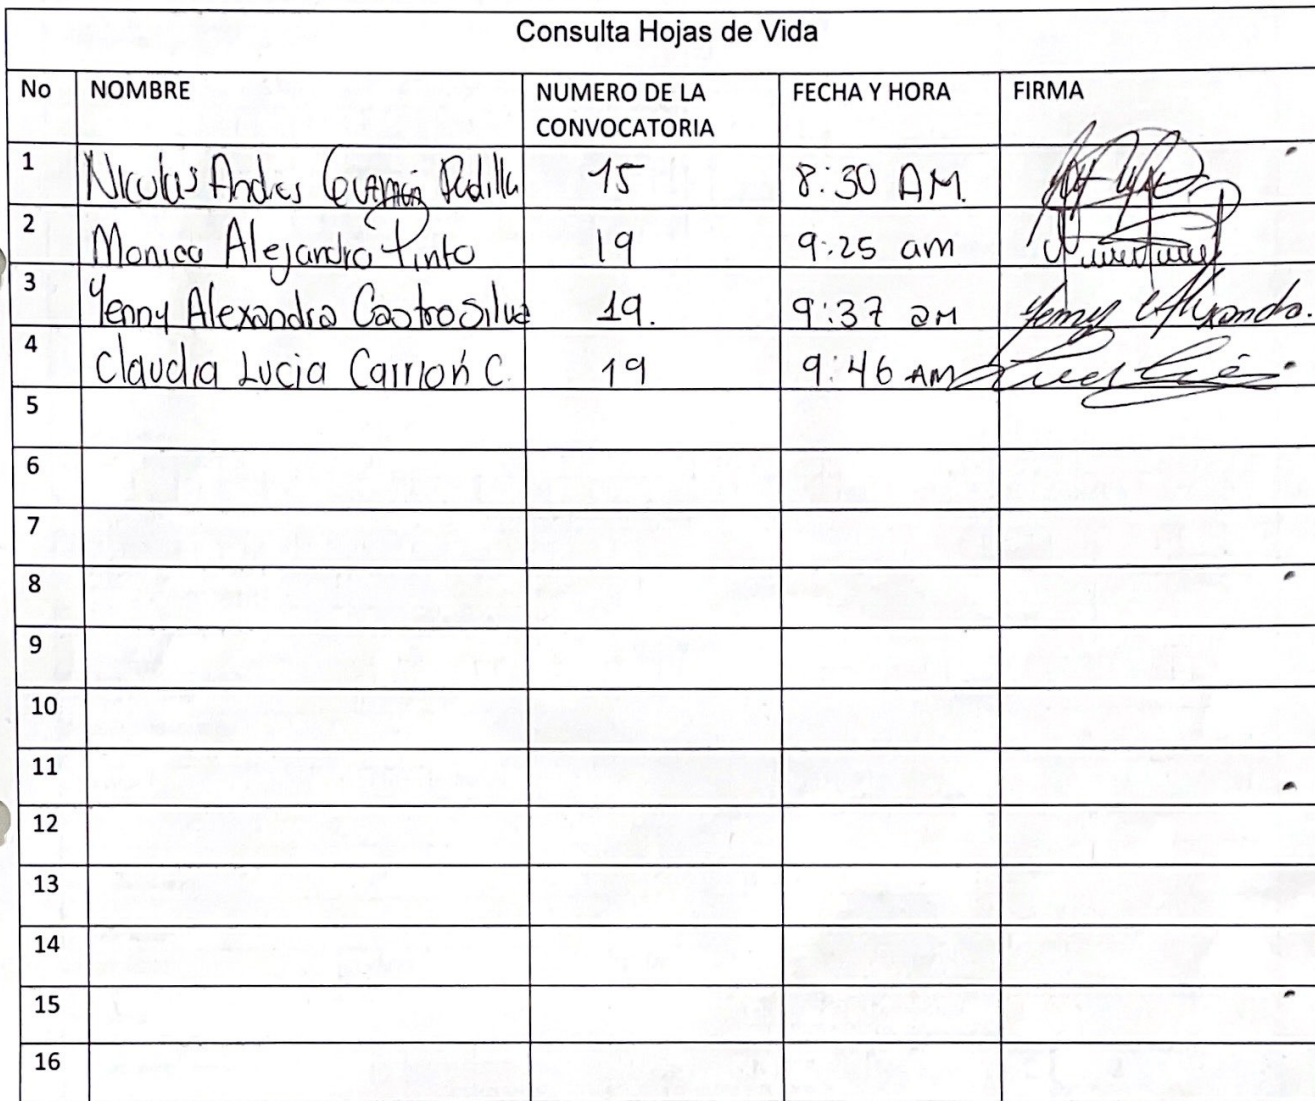 Consulta Hojas de Vida
No NOMBRE NUMERO DE LA CONVOCATORIA FECHA Y HORA FIRMA
1 Nicolas Andres Guzmán Padilla 15 8:30 AM.
2 Monica Alejandra Pinto 19 9:25 am
3 Yenny Alexandra Castro Silva 19. 9:37 am Yenny Alexandra.
4 Claudia Lucia Carrión C. 19 9:46 AM
5
6
7
8
9
10
11
12
13
14
15
16